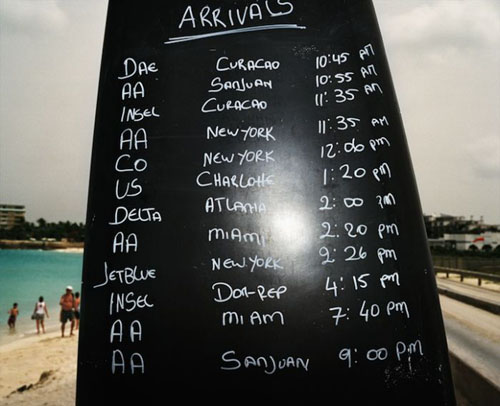 ARRIVALS
DAE CURACAO 10:45 AM
AA SANJUAN 10:55 AM
INSEL CURACAO 11:35 AM
AA NEW YORK 11:35 AM
CO NEW YORK 12:06 PM
US CHARLOTTE 1:20 PM
DELTA ATLANTA 2:00 PM
AA MIAMI 2:20 PM
JETBLUE NEW YORK 2:26 PM
INSEL DOM-REP 4:15 PM
AA MIAMI 7:40 PM
AA SANJUAN 9:00 PM